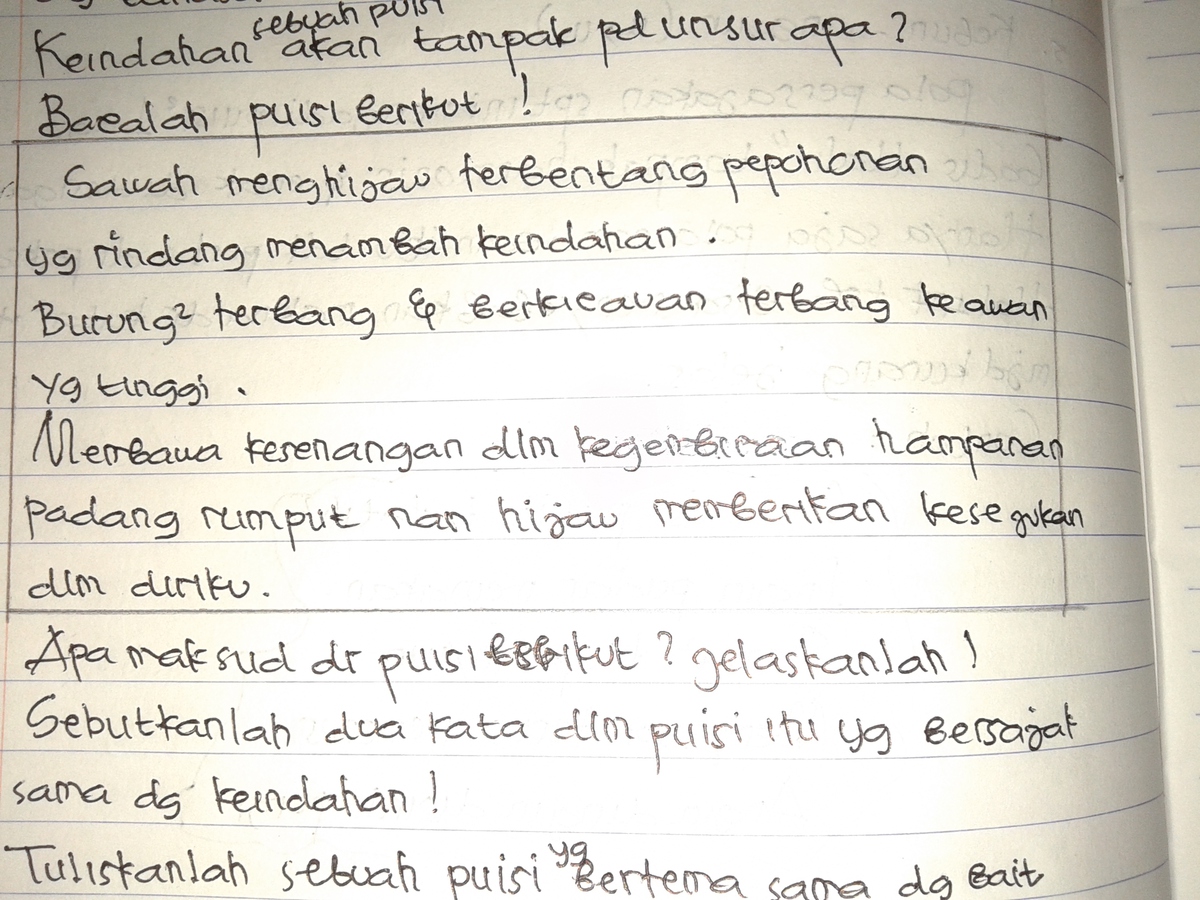 sebuah puisi
Keindahan akan tampak pd unsur apa?
Bacalah puisi berikut!
Sawah menghijau terbentang pepohonan
yg rindang menambah keindahan.
Burung² terbang & berkicauan terbang ke awan
yg tinggi.
Membawa kesenangan dlm kegembiraan hamparan
padang rumput nan hijau memberikan kesegukan
dlm diriku.
Apa maksud dr puisi berikut? gelaskanlah!
Sebutkanlah dua kata dlm puisi itu yg bersajak
sama dg keindahan!
Tuliskanlah sebuah puisi yg bertema sama dg bait